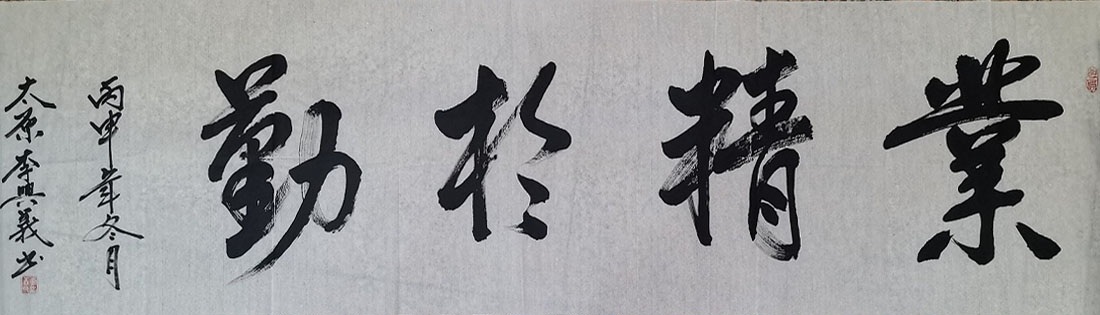 業精於勤
丙申年冬月
太原李興義书